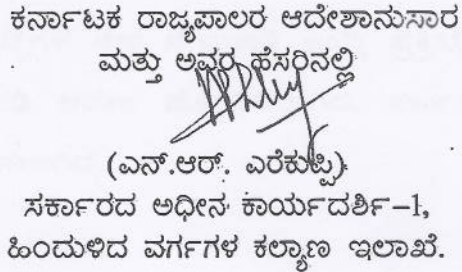 ಕರ್ನಾಟಕ ರಾಜ್ಯಪಾಲರ ಆದೇಶಾನುಸಾರ
ಮತ್ತು ಅವರ ಹೆಸರಿನಲ್ಲಿ
(ಎನ್.ಆರ್. ಎರೆಕುಪ್ಪಿ)
ಸರ್ಕಾರದ ಅಧೀನ ಕಾರ್ಯದರ್ಶಿ-1,
ಹಿಂದುಳಿದ ವರ್ಗಗಳ ಕಲ್ಯಾಣ ಇಲಾಖೆ.